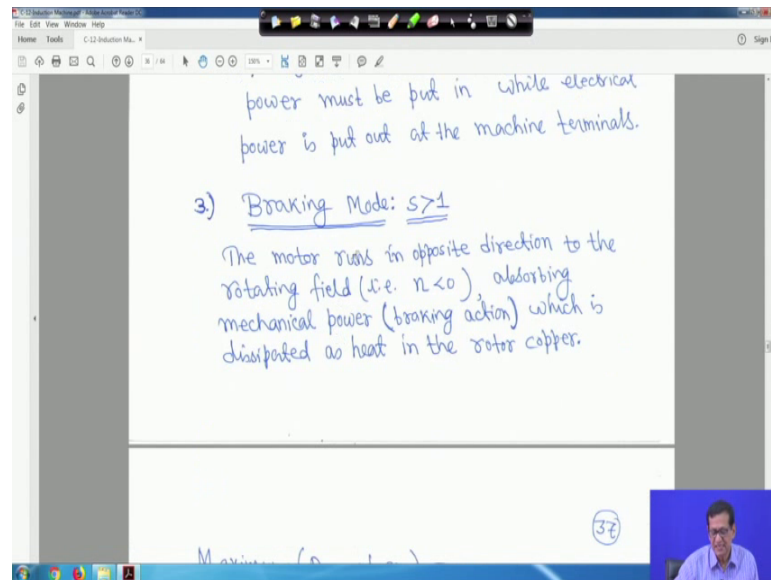 C-12-Induction Machine.pdf - Adobe Acrobat Reader DC
File Edit View Window Help
Home Tools C-12-Induction Ma... × Sign
38 / 64 150%
power must be put in while electrical
power is put out at the machine terminals.
3.) Braking Mode: s>1
The motor runs in opposite direction to the
rotating field (i.e. n<0), absorbing
mechanical power (braking action) which is
dissipated as heat in the rotor copper.
37